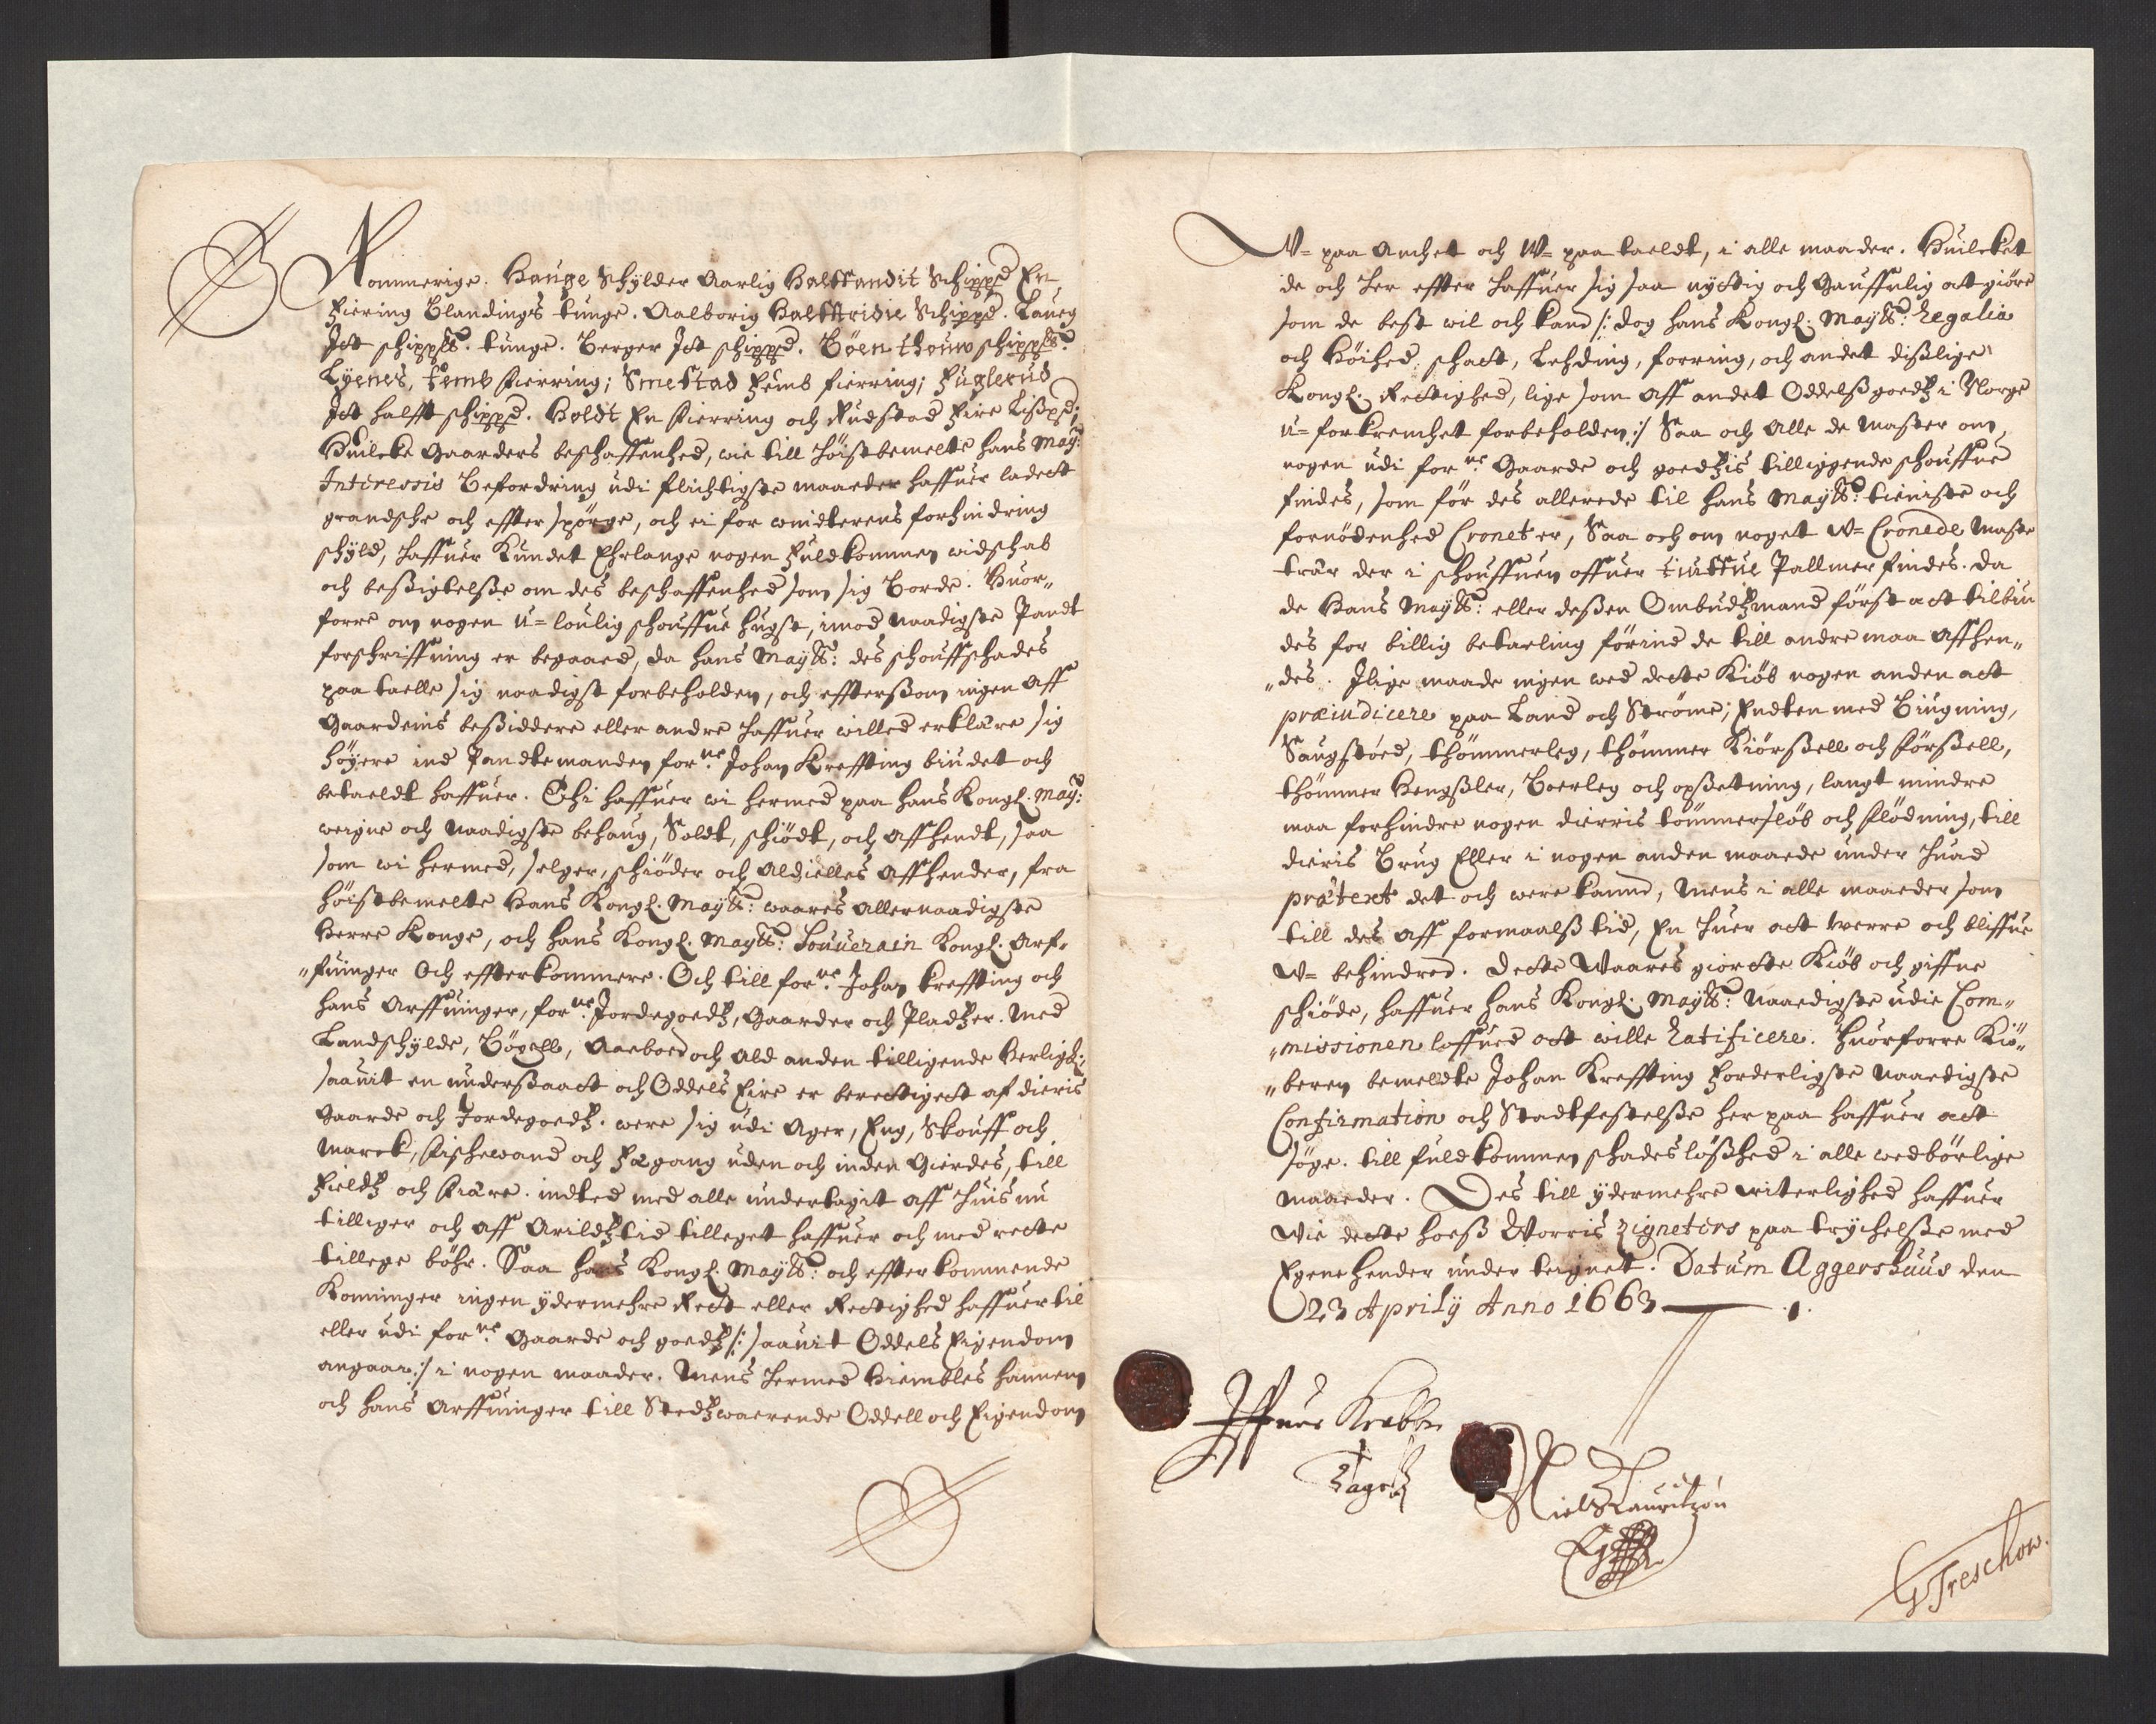 Rommerige. Hauge Schylder Aarlig Halffandit Schippd En
Fiering Blandings tunge. Aalborig Halffridie Schippd. Laueg
Jtt schipp℔. tunge. Berger Jtt schippd. Böen thouw schipp℔.
Lÿenes, femb fierring; Smestad femb fierring; Fuglerud
Jtt halfft schippd. Holdt En fierring och Rudstad Fire Lispd;
Huilcke Gaarders beschaffenhed, wie till höistbemelte hans Maÿ:
Interessis Befordring udi flichtigste maader haffuer ladett
grandsche och effterspörge, och ei for windterens forhindring
schyld, haffuer Kundet Ehrlange nogen fuldkommen widschab
och besigtelse om des beschaffenhed som sig Borde. Huor-
forre om nogen U=loulig schouffue hugst, imod Naadigste Pandt
forschriffning er begaaed, da hans Maÿtt: des schouffschades
paa taelle sig naadigst forbeholden, och effterssom ingen aff
Gaardenis besiddere eller andre haffuer willed erklære sig
höÿere end Pandtemanden forne Johan Kreffting biudet och
betaeldt haffuer. Thi haffuer wi hermed paa hans Kongl. Maÿ:
weigne och Naadigste behaug, Soldt, schiödt, och affhendt, saa
som wi hermed, selger, schiöder och aldielles affhender, fra
höistbemelte Hans Kongl. Maÿtt: waares allernaadigste
Herre Konge, och hans Kongl. Maÿtt: Souuerain Kongl. Arf-
fuinger Och effterkommere. Och till forne Johan kreffting och
hans Arffuinger, forne Jordegoedtz, Gaarder och Pladtzer. Med
Landschylde, Böxell, Aaeboed och ald anden tilligende Herligh:
saauit en undersaatt och Oddels Eire er berettigett af dieris
Gaarde och Jordegoedtz. were sig udi Ager, Eng, Skouff och
Marck, fischewand och Fægang uden och inden Gierdes, till
Fieldtz och Fiære. indted med alle undertagit aff huis nu
tilliger och aff Arildtz tid tilleget haffuer och med rette
tillege böhr. Saa hans Kongl. Maÿtt: och effterkommende
Konninger ingen ÿdermehre Rett eller Rettighed haffuer til
eller udi forne Gaarde och goedtz /: saauit Oddels Eigendom
angaar :/ i nogen maader. Mens hermed hiembles hannem
och hans Arffuinger till Stedtzwaerende Oddell och Eigendom
W=paa anchet och W=paa taeldt, i alle maader. Huilcket
de och her effter haffuer sig saa nyttig och Gauffnlig att giöre
som de best wil och kand /: dog hans Kongl. Maÿtt: Regalia
och Höihed, schatt, Lehding, forring, och andet dislige
Kongl. Rettighed, lige som aff andet Oddelsgoedtz i Norge
u=forkrenchet forbeholden :/ Saa och alle de Master om
nogen udi forne Gaarde och goedtzis tilliggende schouffue
findes, som för des allerede til hans Maÿtt: tieniste och
fornödenhed Cronet er, Saa och om noget W=Cronede Maste
trær der i schouffuen offuer tiuffue Pallmer findes. da
de Hans Maÿtt: eller desen Ombudtzmand först att tilbiu
des for billig betaeling förind de till andre maa affhen-
des. Jlige maade ingen wed dette Kiöb nogen anden att
præiudicere paa Land och Ströme; Endten med Biugning,
Saugstöed, thömmerleg, thömmer Kiörsell och förssell,
thömmer Hengsler, Boerleg och opsetning, langt mindre
maa forhindre nogen dierris tömmerflöb och flödning, till
dieris Brug Eller i nogen anden maade under huad
prætext det och were kannd, Mens i alle maader som
till des aff formaalss tid, En huer att werre och bliffue
W=behindred. Dette Waares giorette Kiöb och giffne
schiöde, haffuer hans Kongl. Maÿtt: Naaedigste udi Com-
missionen loffued att wille Ratificere. Huorforre Kiö-
beren bemeldte Johan Kreffting forderligste Naaedigste
Confirmation och Stadtfestelsse her paa haffuer att
söge. till fuldkommen schadeslösshed i alle wedbörlige
maaeder. Des till ÿdermehre witerlighed haffuer
Wie dette hoess Worris zigneters paa trÿchelsse med
Egene Hender under teignet. Datum Aggershuus den
23 Aprilÿ Anno 1663
Jffuer Krabbe
Niels Lauritzön
G Treschow.